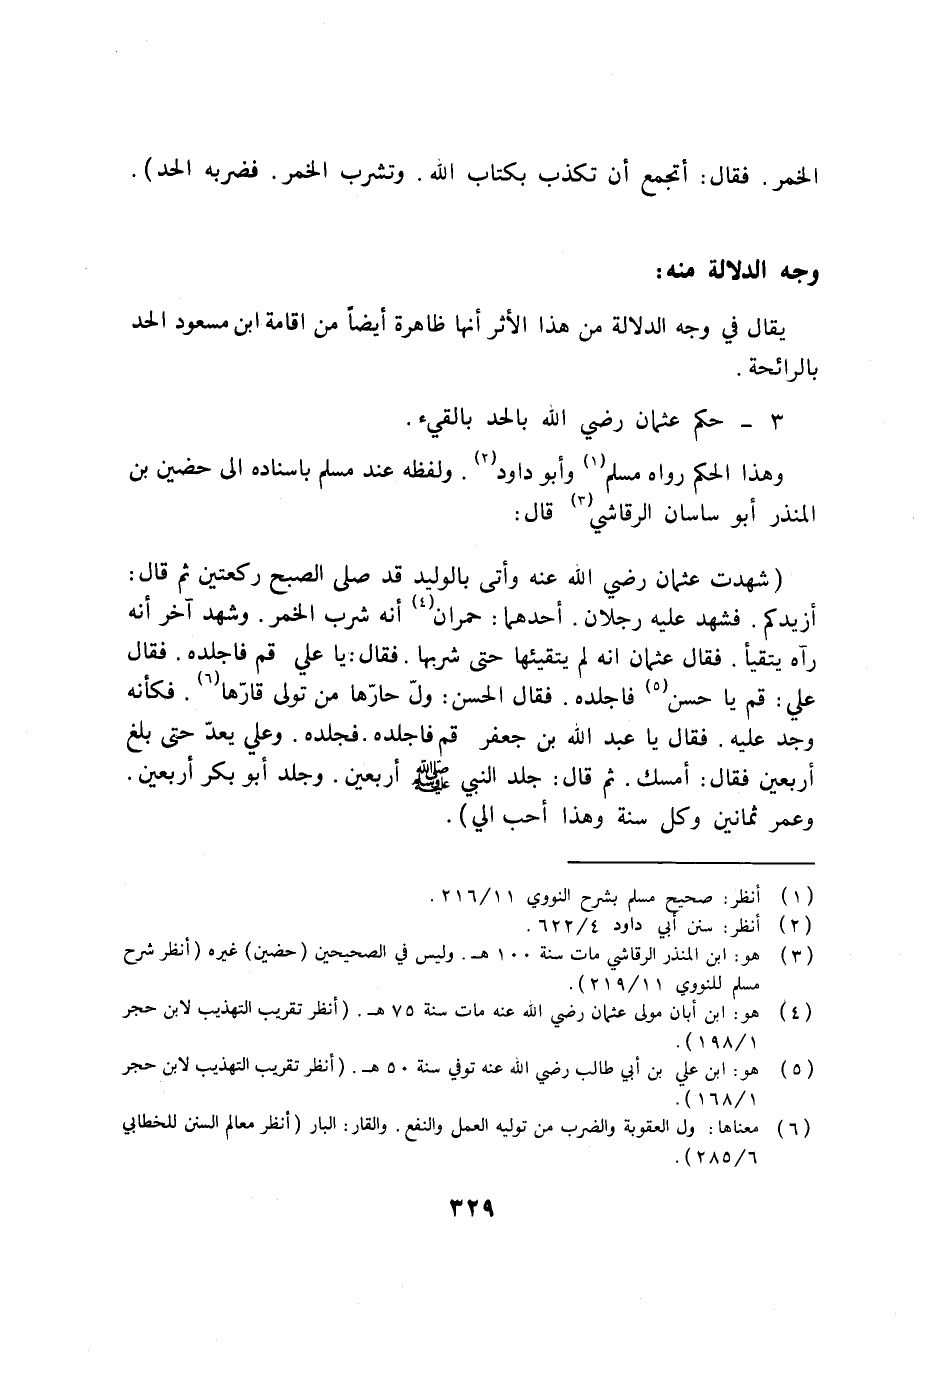 الخمر. فقال: أتجمع أن تكذب بكتاب الله. وتشرب الخمر. فضربه الحد).
وجه الدلالة منه:
يقال في وجه الدلالة من هذا الأثر أنها ظاهرة أيضاً من اقامة ابن مسعود الحد
بالرائحة.
٣ ـ حكم عثمان رضي الله بالحد بالقيء.
وهذا الحكم رواه مسلم(١) وأبو داود(٢). ولفظه عند مسلم باسناده الى حضين بن
المنذر أبو ساسان الرقاشي(٣) قال:
(شهدت عثمان رضي الله عنه وأتى بالوليد قد صلى الصبح ركعتين ثم قال:
أزيدكم. فشهد عليه رجلان. أحدهما: حمران(٤) أنه شرب الخمر. وشهد آخر أنه
رآه يتقيأ. فقال عثمان انه لم يتقيئها حتى شربها. فقال: يا علي قم فاجلده. فقال
علي: قم يا حسن(٥) فاجلده. فقال الحسن: ولّ حارّها من تولى قارّها(٦). فكأنه
وجد عليه. فقال يا عبد الله بن جعفر قم فاجلده. فجلده. وعلي يعدّ حتى بلغ
أربعين فقال: أمسك. ثم قال: جلد النبي ﷺ أربعين. وجلد أبو بكر أربعين.
وعمر ثمانين وكل سنة وهذا أحب الي).
(١) أنظر: صحيح مسلم بشرح النووي ٢١٦/١١.
(٢) أنظر: سنن أبي داود ٦٢٢/٤.
(٣) هو: ابن المنذر الرقاشي مات سنة ١٠٠ هـ. وليس في الصحيحين (حضين) غيره (أنظر شرح
مسلم للنووي ٢١٩/١١).
(٤) هو: ابن أبان مولى عثمان رضي الله عنه مات سنة ٧٥ هـ. (أنظر تقريب التهذيب لابن حجر
١٩٨/١).
(٥) هو: ابن علي بن أبي طالب رضي الله عنه توفي سنة ٥٠ هـ. (أنظر تقريب التهذيب لابن حجر
١٦٨/١).
(٦) معناها: ول العقوبة والضرب من توليه العمل والنفع. والقار: البار (أنظر معالم السنن للخطابي
٢٨٥/٦).
٣٢٩